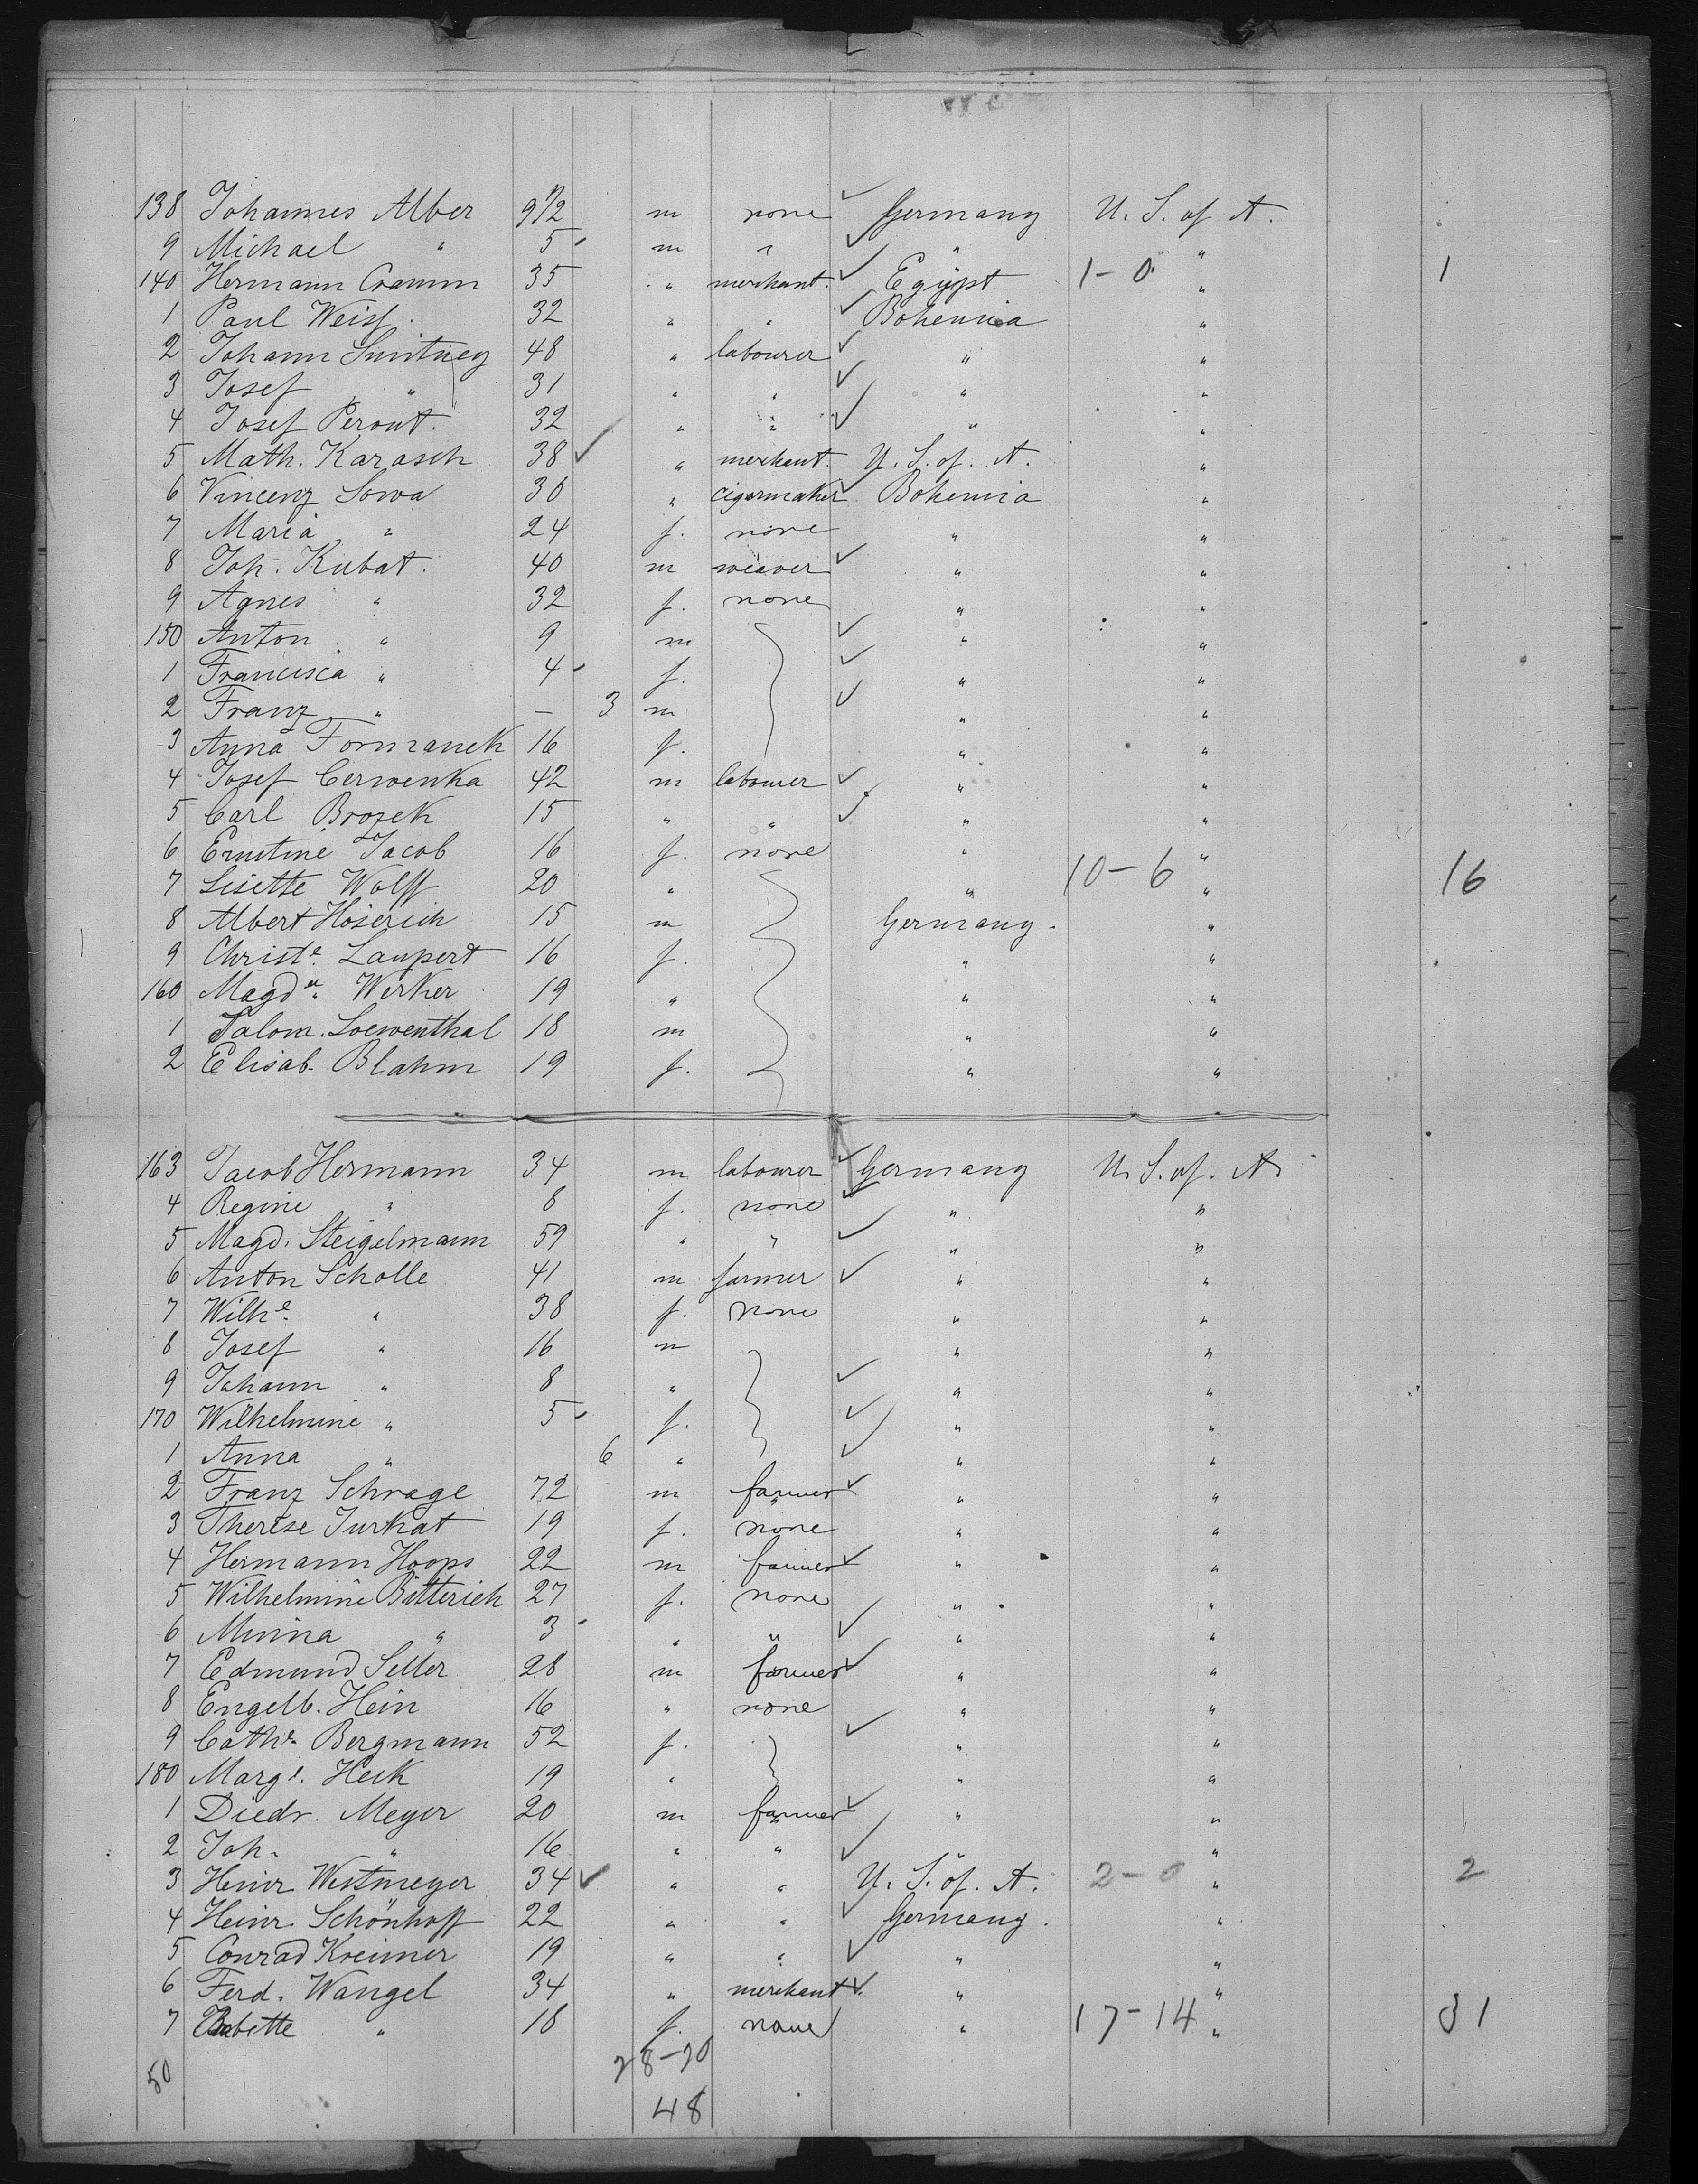 138 Johannes Alber 9 1/2 m none Germany U. S. of A.
9 Michael " 5 m " " "
140 Hermann Cramm 35 " merchant Egypt 1-0 " 1
1 Paul Weiss 32 " " Bohemia "
2 Johann Smitney 48 " labourer " "
3 Josef " 31 " " " "
4 Josef Perout. 32 " " " "
5 Math. Karasch 38 " merchant. U. S. of. A. "
6 Vincenz Sowa 30 " cigarmaker Bohemia "
7 Maria " 24 f. none " "
8 Joh. Kubat. 40 m weaver " "
9 Agnes " 32 f. none " "
150 Anton " 9 m " "
1 Francisca " 4 f. " "
2 Franz " — 3 m " "
3 Anna Formanek 16 f. " "
4 Josef Cerwenka 42 m labourer " "
5 Carl Brozek 15 " " " "
6 Ernstine Jacob 16 f. none " "
7 Lisette Wolff 20 " " 10-6 " 16
8 Albert Hoserich 15 m Germany. "
9 Christe. Laupert 16 f. " "
160 Magd. Werker 19 " " "
1 Salom. Loewenthal 18 m " "
2 Elisab. Blahm 19 f. " "
163 Jacob Hermann 34 m labourer Germany U. S. of. A.
4 Regine " 8 f. none " "
5 Magd. Steigelmann 59 " " " "
6 Anton Scholle 41 m farmer " "
7 Wilhe. " 38 f. none " "
8 Josef " 16 m " "
9 Johann " 8 " " "
170 Wilhelmine " 5 f. " "
1 Anna " 6 " " "
2 Franz Schrage 72 m farmer " "
3 Therese Jurkat 19 f. none " "
4 Hermann Hoops 22 m farmer " "
5 Wilhelmine Bitterich 27 f. none " "
6 Minna " 3 " " " "
7 Edmund Seller 28 m farmer " "
8 Engelb. Hein 16 " none " "
9 Cathe. Bergmann 52 f. " "
180 Marge. Heck 19 " " "
1 Diedr. Meyer 20 m farmer " "
2 Joh. " 16 " " " "
3 Heinr Westmeyer 34 " " U. S. of. A. 2-0 " 2
4 Heinr. Schönhoff 22 " " Germany. "
5 Conrad Kreimer 19 " " " "
6 Ferd. Wangel 34 " merchant " "
7 Babette " 18 f. none " 17-14 " 31
50 28-20
48